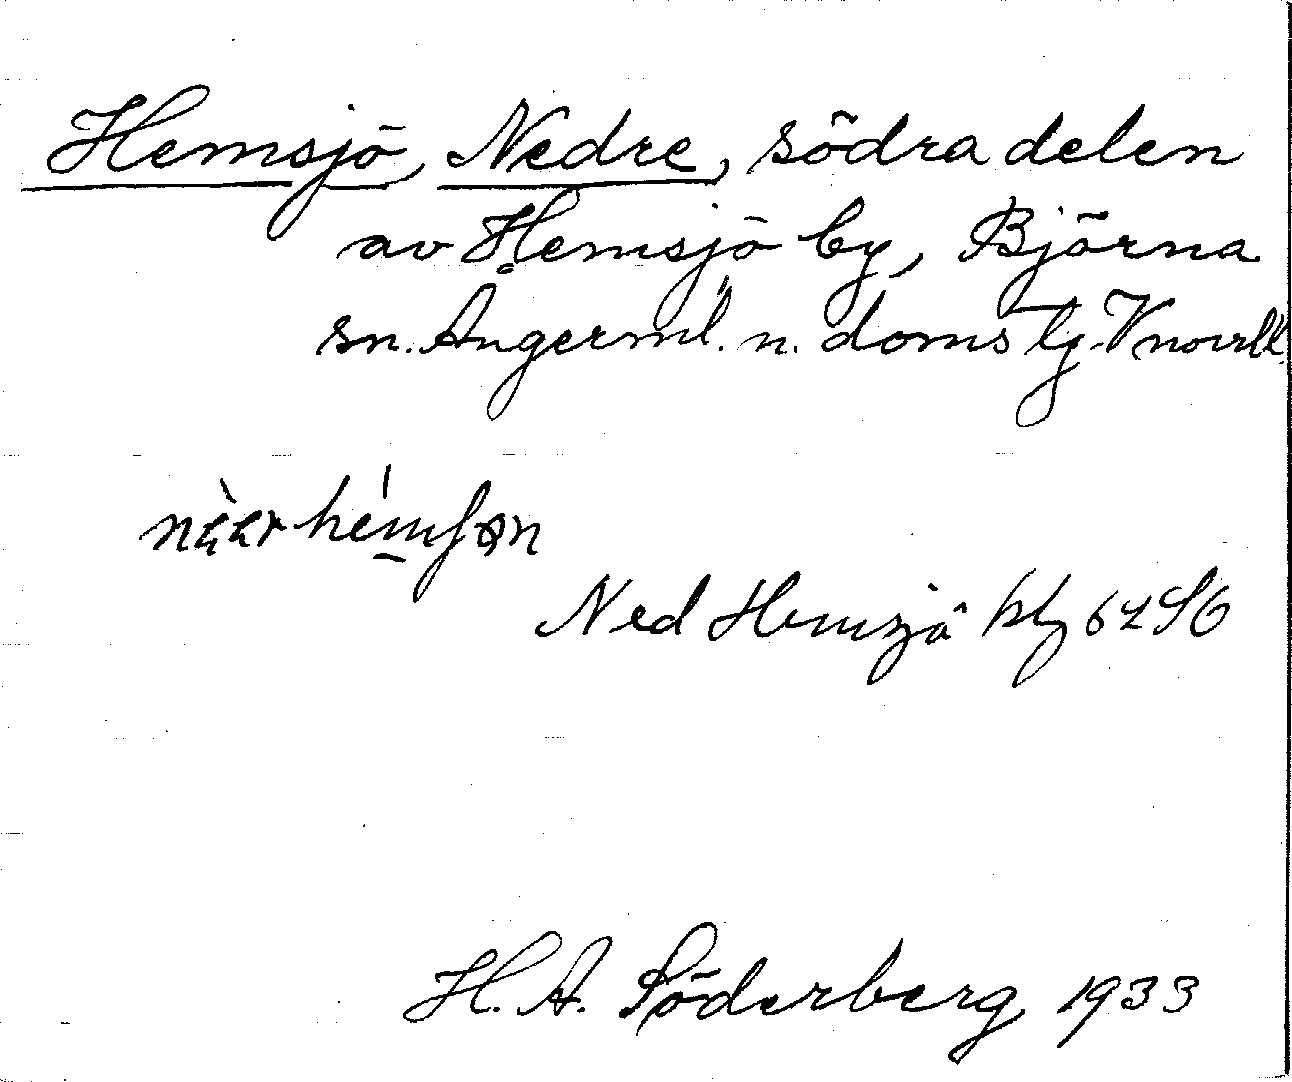 Hemsjö, Nedre, södra delen
av Hemsjö by, Björna
sn. Ångerml. n. doms tg. Vnorrl.
Ned Hemsjö
H. A. Söderberg 1933